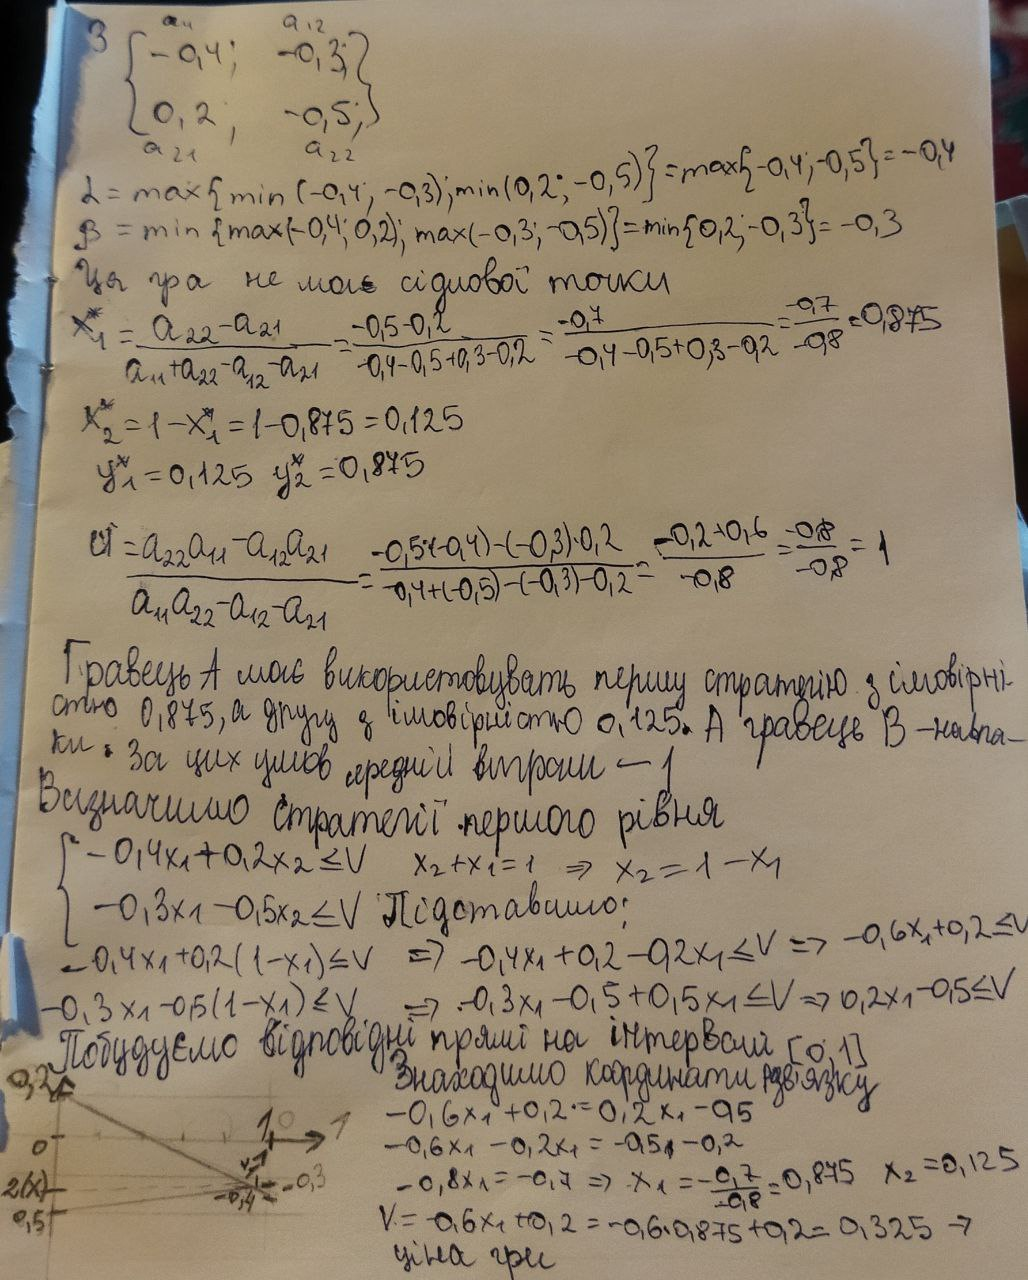 3
a11 a12
{-0,4; -0,3;}
{0,2; -0,5;}
a21 a22
α = max{min(-0,4; -0,3); min(0,2; -0,5)} = max{-0,4; -0,5} = -0,4
β = min{max(-0,4; 0,2); max(-0,3; -0,5)} = min{0,2; -0,3} = -0,3
Ця гра не має сідлової точки
x*1 = (a22 - a21)/(a11 + a22 - a12 - a21) = (-0,5-0,2)/(-0,4-0,5+0,3-0,2) = -0,7/(-0,4-0,5+0,3-0,2) = -0,7/-0,8 = 0,875
x*2 = 1 - x*1 = 1 - 0,875 = 0,125
y*1 = 0,125 y*2 = 0,875
= (a22a11 - a12a21)/(a11a22 - a12 - a21) = (-0,5·(-0,4)-(-0,3)·0,2)/(-0,4+(-0,5)-(-0,3)-0,2) = (-0,2+0,6)/-0,8 = -0,8/-0,8 = 1
Гравець А має використовувать першу стратегію з імовірні-
стю 0,875, а другу з імовірністю 0,125. А гравець В – навпа-
ки. За цих умов середній виграш – 1
Визначимо стратегії першого рівня
{ -0,4x1 + 0,2x2 ≤ V x2 + x1 = 1 ⇒ x2 = 1 - x1
-0,3x1 - 0,5x2 ≤ V Підставимо:
-0,4x1 + 0,2(1-x1) ≤ V ⇒ -0,4x1 + 0,2 - 0,2x1 ≤ V ⇒ -0,6x1 + 0,2 ≤ V
-0,3x1 - 0,5(1-x1) ≤ V ⇒ -0,3x1 - 0,5 + 0,5x1 ≤ V ⇒ 0,2x1 - 0,5 ≤ V
Побудуємо відповідні прямі на інтервалі [0,1]
Знаходимо координати розв'язку
-0,6x1 + 0,2 = 0,2x1 - 0,5
-0,6x1 - 0,2x1 = -0,5 - 0,2
-0,8x1 = -0,7 ⇒ x1 = -0,7/-0,8 = 0,875 x2 = 0,125
V = -0,6x1 + 0,2 = -0,6·0,875 + 0,2 = 0,325 →
ціна гри
0,2
0
1 0 1
2(x)
-0,4
-0,3
0,5